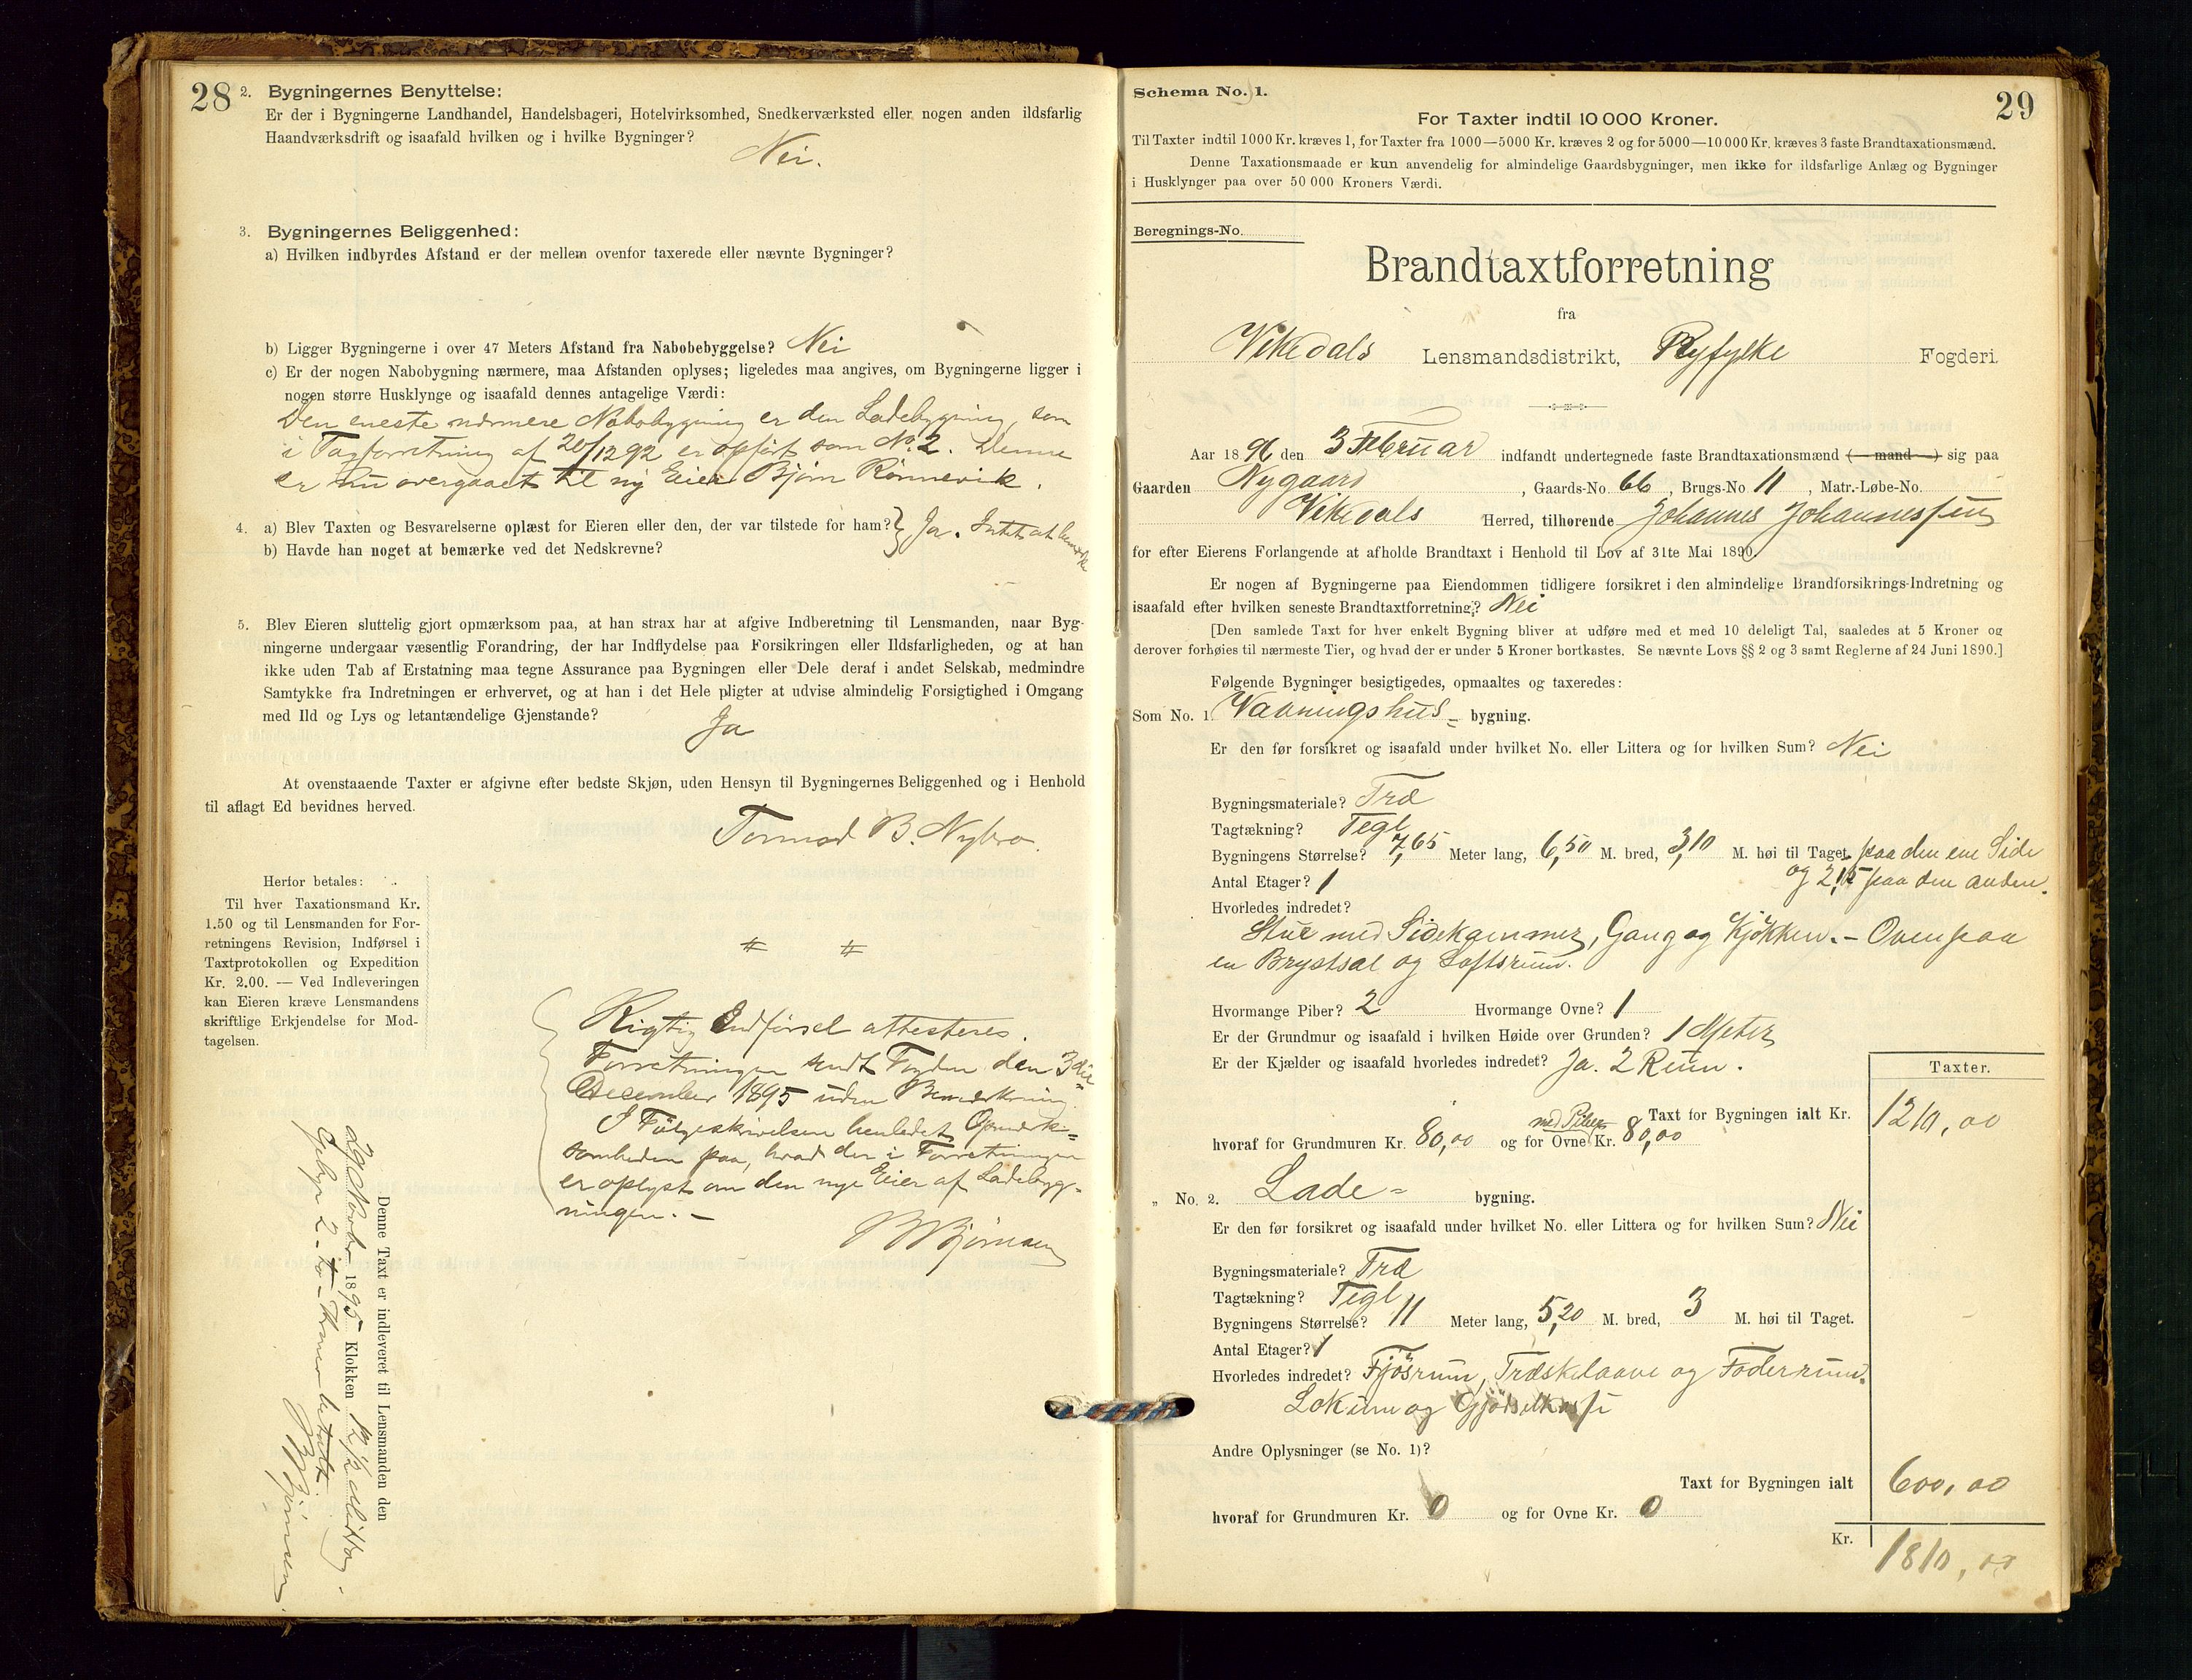 28
2. Bygningernes Benyttelse:
Er der i Bygningerne Landhandel, Handelsbageri, Hotelvirksomhed, Snedkerværksted eller nogen anden ildsfarlig
Haandværksdrift og isaafald hvilken og i hvilke Bygninger?
Nei.
3. Bygningernes Beliggenhed:
a) Hvilken indbyrdes Afstand er der mellem ovenfor taxerede eller nævnte Bygninger?
b) Ligger Bygningerne i over 47 Meters Afstand fra Nabobebyggelse? Nei
c) Er der nogen Nabobygning nærmere, maa Afstanden oplyses; ligeledes maa angives, om Bygningerne ligger i
nogen større Husklynge og isaafald dennes antagelige Værdi:
Den eneste nærmere Nabobygning er den Ladebygning, som
i Taxforretning af 20/12 92 er opført som No. 2. Denne
er nu overgaaet til ny Eier Bjørn Rønnevik.
4. a) Blev Taxten og Besvarelserne oplæst for Eieren eller den, der var tilstede for ham? } Ja. Intet at bemærke
b) Havde han noget at bemærke ved det Nedskrevne?
5. Blev Eieren sluttelig gjort opmærksom paa, at han strax har at afgive Indberetning til Lensmanden, naar Byg-
ningerne undergaar væsentlig Forandring, der har Indflydelse paa Forsikringen eller Ildsfarligheden, og at han
ikke uden Tab af Erstatning maa tegne Assurance paa Bygningen eller Dele deraf i andet Selskab, medmindre
Samtykke fra Indretningen er erhvervet, og at han i det Hele pligter at udvise almindelig Forsigtighed i Omgang
med Ild og Lys og letantændelige Gjenstande?
Ja
At ovenstaaende Taxter er afgivne efter bedste Skjøn, uden Hensyn til Bygningernes Beliggenhed og i Henhold
til aflagt Ed bevidnes herved.
Tormod B. Nybro.
Herfor betales:
Til hver Taxationsmand Kr.
1.50 og til Lensmanden for For-
retningens Revision, Indførsel i
Taxtprotokollen og Expedition
Kr. 2.00. — Ved Indleveringen
kan Eieren kræve Lensmandens
skriftlige Erkjendelse for Mod-
tagelsen.
Rigtig Indførsel attesteres.
Forretningen sendt Fogden den 3die
December 1895 uden Bemærkning.
I Følgeskrivelsen henledet Opmærk-
somheden paa, hvad der i Forretningen
er oplyst om den nye Eier af Ladebyg-
ningen. —
B Bjørnsen
Denne Taxt er indleveret til Lensmanden den
29 Novbr 1895 Klokken 12 1/2 Middag.
Gebyr 2 - to - Kroner betalt.
B Bjørnsen
Schema No. 1.
29
For Taxter indtil 10 000 Kroner.
Til Taxter indtil 1000 Kr. kræves 1, for Taxter fra 1000—5000 Kr. kræves 2 og for 5000—10 000 Kr. kræves 3 faste Brandtaxationsmænd.
Denne Taxationsmaade er kun anvendelig for almindelige Gaardsbygninger, men ikke for ildsfarlige Anlæg og Bygninger
i Husklynger paa over 50 000 Kroners Værdi.
Beregnings-No.
Brandtaxtforretning
fra
Vikedals Lensmandsdistrikt, Ryfylke Fogderi.
Aar 1896 den 3 Februar indfandt undertegnede faste Brandtaxationsmænd (— mand —) sig paa
Gaarden Nygaard, Gaards-No. 66, Brugs-No 11, Matr.-Løbe-No.
Vikedals Herred, tilhørende Johannes Johannessen
for efter Eierens Forlangende at afholde Brandtaxt i Henhold til Lov af 31te Mai 1890.
Er nogen af Bygningerne paa Eiendommen tidligere forsikret i den almindelige Brandforsikrings-Indretning og
isaafald efter hvilken seneste Brandtaxtforretning? Nei
[Den samlede Taxt for hver enkelt Bygning bliver at udføre med et med 10 deleligt Tal, saaledes at 5 Kroner og
derover forhøies til nærmeste Tier, og hvad der er under 5 Kroner bortkastes. Se nævnte Lovs §§ 2 og 3 samt Reglerne af 24 Juni 1890.]
Følgende Bygninger besigtigedes, opmaaltes og taxeredes:
Som No. 1. Vaaningshus- bygning.
Er den før forsikret og isaafald under hvilket No. eller Littera og for hvilken Sum? Nei
Bygningsmateriale? Træ
Tagtækning? Tegl
Bygningens Størrelse? 7,65 Meter lang, 6,50 M. bred, 3,10 M. høi til Taget. paa den ene Side
Antal Etager? 1 og 2,15 paa den anden.
Hvorledes indredet?
Stue med Sidekammer, Gang og Kjøkken. — Ovenpaa
en Brystsal og Loftsrum.
Hvormange Piber? 2 Hvormange Ovne? 1
Er der Grundmur og isaafald i hvilken Høide over Grunden? 1 Meter
Er der Kjælder og isaafald hvorledes indredet? Ja. 2 Rum.
Taxter.
Taxt for Bygningen ialt Kr. 1210,00
hvoraf for Grundmuren Kr. 80,00 og for Ovne med Piber Kr. 80,00
„ No. 2. Lade- bygning.
Er den før forsikret og isaafald under hvilket No. eller Littera og for hvilken Sum? Nei
Bygningsmateriale? Træ
Tagtækning? Tegl
Bygningens Størrelse? 11 Meter lang, 5,20 M. bred, 3 M. høi til Taget.
Antal Etager? 1
Hvorledes indredet? Fjøsrum, Træskelaave og Foderrum.
Lokum og
Andre Oplysninger (se No. 1)?
Taxt for Bygningen ialt 600,00
hvoraf for Grundmuren Kr. 0 og for Ovne Kr. 0
Kr. 1810,00